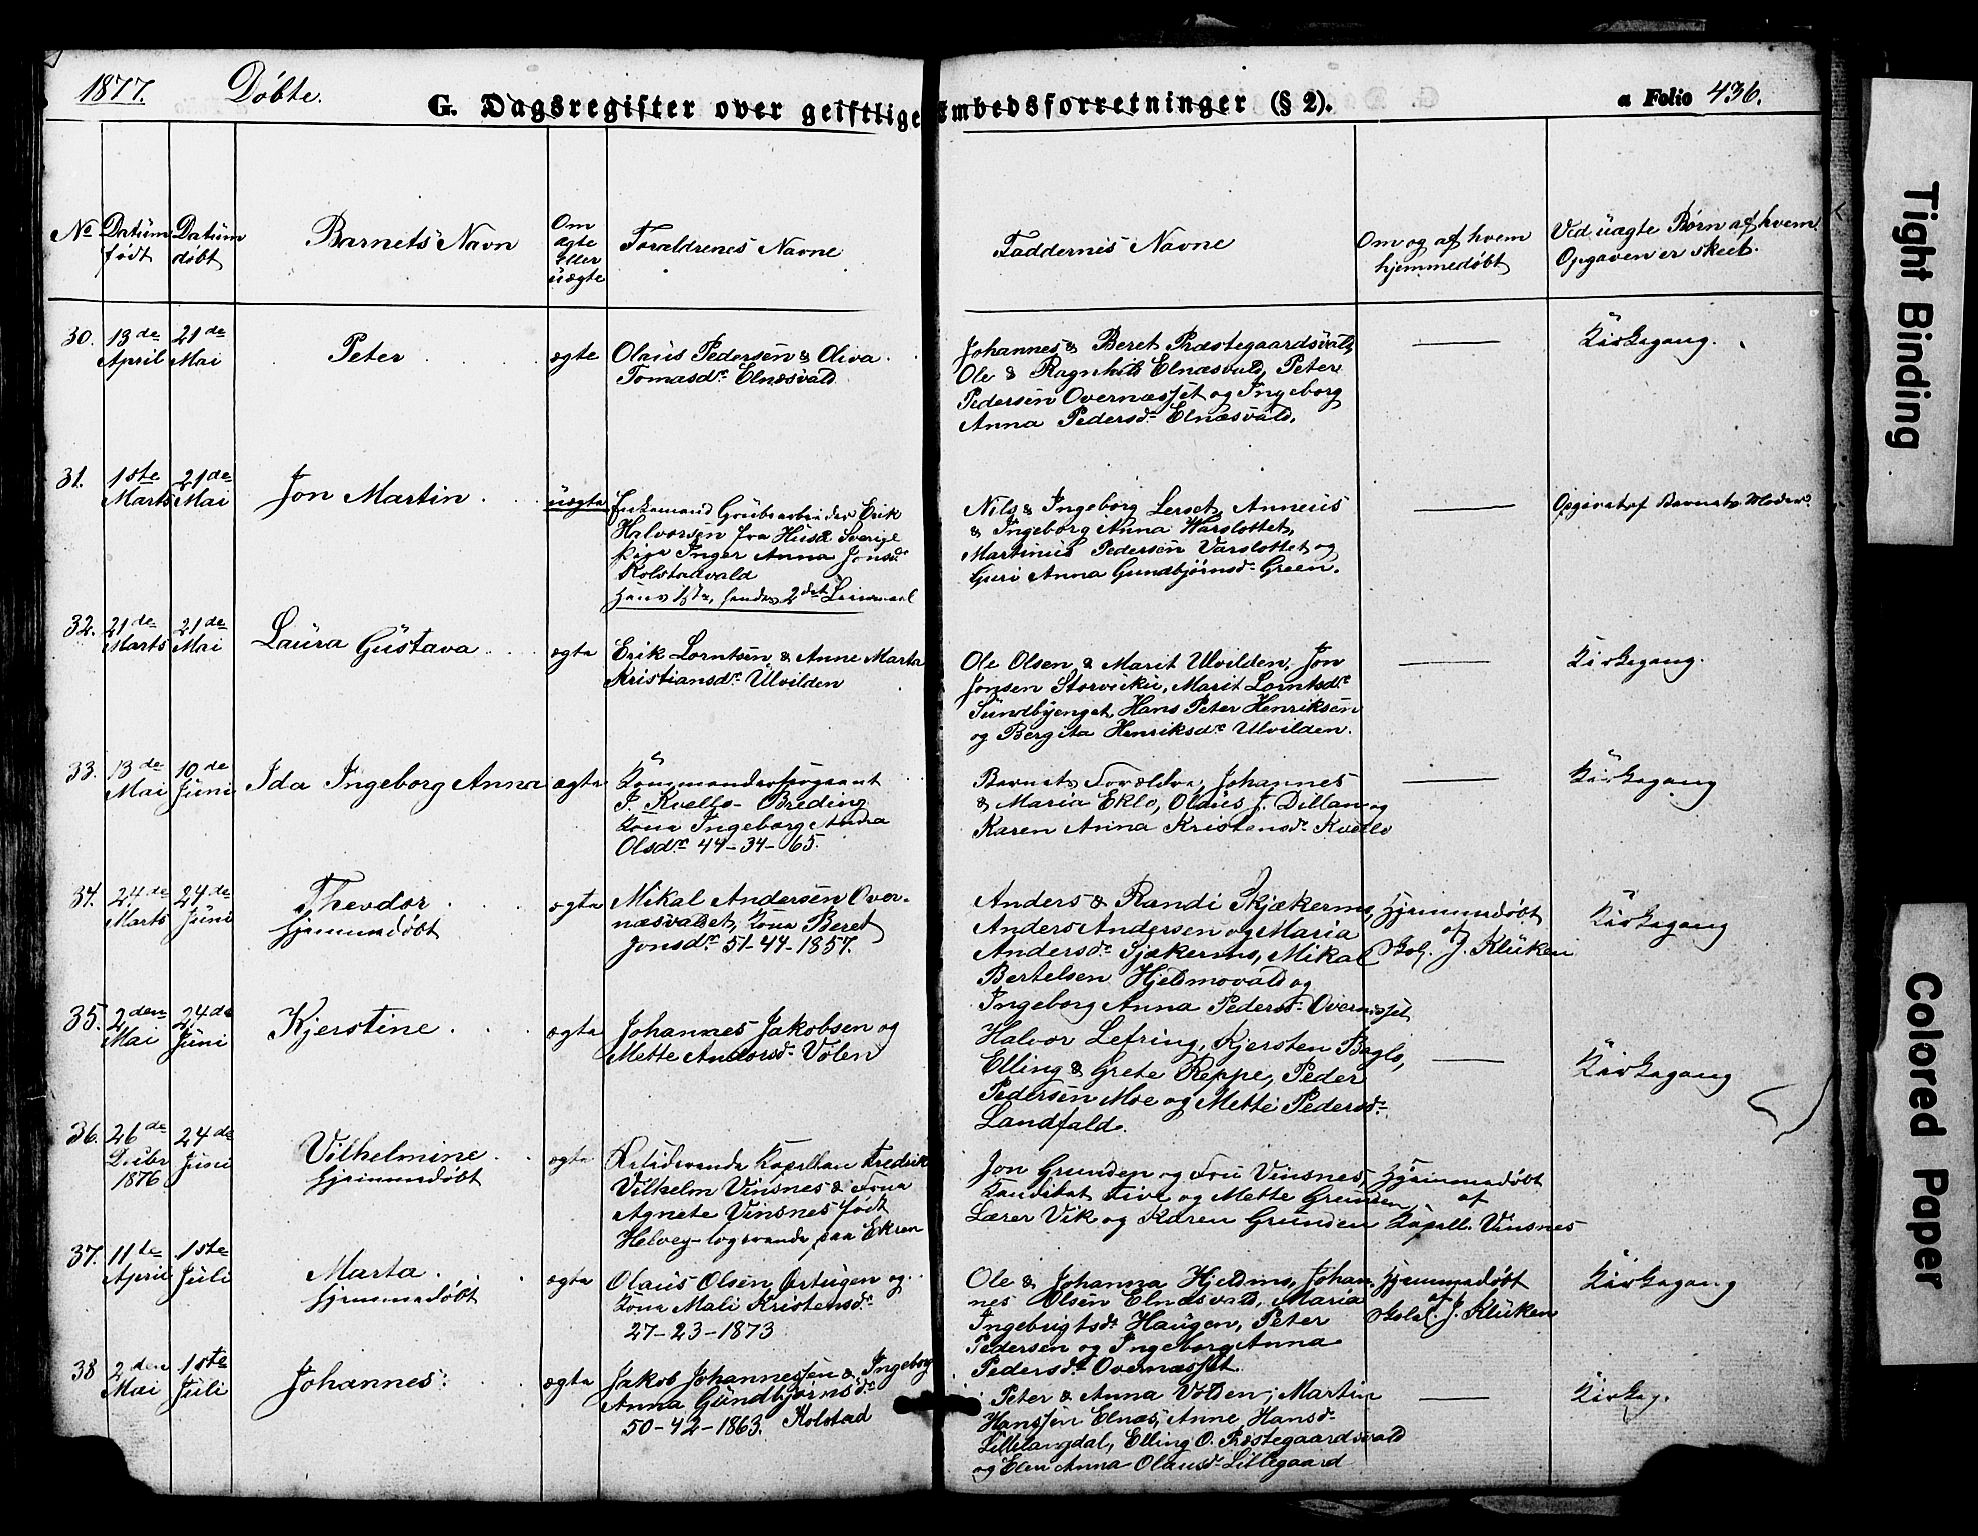 1877. Døbte. G. Dagsregister over geistlige Embedsforretninger (§ 2). a Folio 436.
№ Datum født Datum døbt Barnets Navn Om ægte eller uægte Forældrenes Navne Faddernes Navne Om og af hvem hjemmedøbt Ved uægte Børn af hvem Opgaven er skeet.
30. 13de April 21de Mai Peter ægte Olaus Pedersen & Oliva
Tomasdr Elnæsvald
Johannes & Beret Præstegaardsvald,
Ole & Ragnhild Elnæsvald, Peter
Pedersen Overnæsset og Ingeborg
Anna Pedersdr Elnæsvald.
— Kirkegang.
31. 1ste Marts 21de Mai Jon Martin uægte Enkemand Grubearbeider Erik
Halvorsen fra Huså Sverige
Pige Inger Anna Jonsdr
Kolstadvald
hans 1ste, hendes 2det Leiermaal
Nils & Ingeborg Lerset, Anneus
& Ingeborg Anna Warslottet,
Martinus Pedersen Varslottet og
Guri Anna Gundbjørnsdr Green.
— Opgivet af Barnets Moder
32. 21de Marts 21de Mai Laura Gustava ægte Erik Lorntsen & Anne Marta
Kristiansdr Ulvilden
Ole Olsen & Marit Ulvilden, Jon
Jonsen Storvuku, Marit Lorntsdr
Sundbyenget, Hans Peter Henriksen
og Bergita Henriksdr Ulvilden.
— Kirkegang.
33. 13de Mai 10de Juni Ida Ingeborg Anna ægte Kommandersergeant
J. Kvello-Breding
Kone Ingeborg Anna
Olsdr 44-34-65.
Barnets Forældre, Johannes
& Maria Eklo, Olaus J. Dillan og
Karen Anna Kristensdr Kvello
— Kirkegang
34. 24de Marts 24de Juni Theodor
hjemmedøbt
ægte Mikal Andersen Over-
næsvaldet, Kone Beret
Jonsdr 51-44-1857.
Anders & Randi Skjækermo,
Anders Andersen og Maria
Andersdr Sjækermo, Mikal
Bertelsen Hjelmovald og
Ingeborg Anna Pedersdr Overnæsset
Hjemmedøbt
af
Skol. J. Klüken
Kirkegang
35. 2den Mai 24de Juni Kjerstine ægte Johannes Jakobsen og
Mette Andersdr Volen
Halvor Lefring, Kjersten Baglo,
Elling & Grete Reppe, Peder
Pedersen Moe og Mette Pedersdr
Landfald.
— Kirkegang
36. 26de Decbr 1876 24de Juni Vilhelmine
hjemmedøbt
ægte Residerende Kapellan Fredrik
Vilhelm Vinsnes & Frue
Agnete Vinsnes født
Helvey logerende paa Ekren
Jon Grunden og Fru Vinsnes,
Kandidat Five og Mette Grunden
Lærer Vik og Karen Grunden
Hjemmedøbt
af
Kapell. Vinsnes
37. 11te April 1ste Juli Marta
hjemmedøbt
ægte Olaus Olsen Ørtugen og
Kone Mali Kristensdr
27-23-1873
Ole & Johanna Hjelmo, Johan-
nes Olsen Elnæsvald, Maria
Ingebrigtsdr Haugen, Peter
Pedersen og Ingeborg Anna
Pedersdr Overnæsset.
Hjemmedøbt
af
Skolel. J. Klüken
Kirkegang
38 2den Mai 1ste Juli Johannes ægte Jakob Johannessen & Ingeborg
Anna Gundbjørnsdr
50-42-1863. Kolstad
Peter & Anna Volden, Martin
Hanssen Elnæs, Anne Hansdr
Lillelangdal, Elling O. Præstegaardsvald
og Elen Anna Olausdr Lillegaard
— Kirkeg.
Tight Binding
Colored Paper